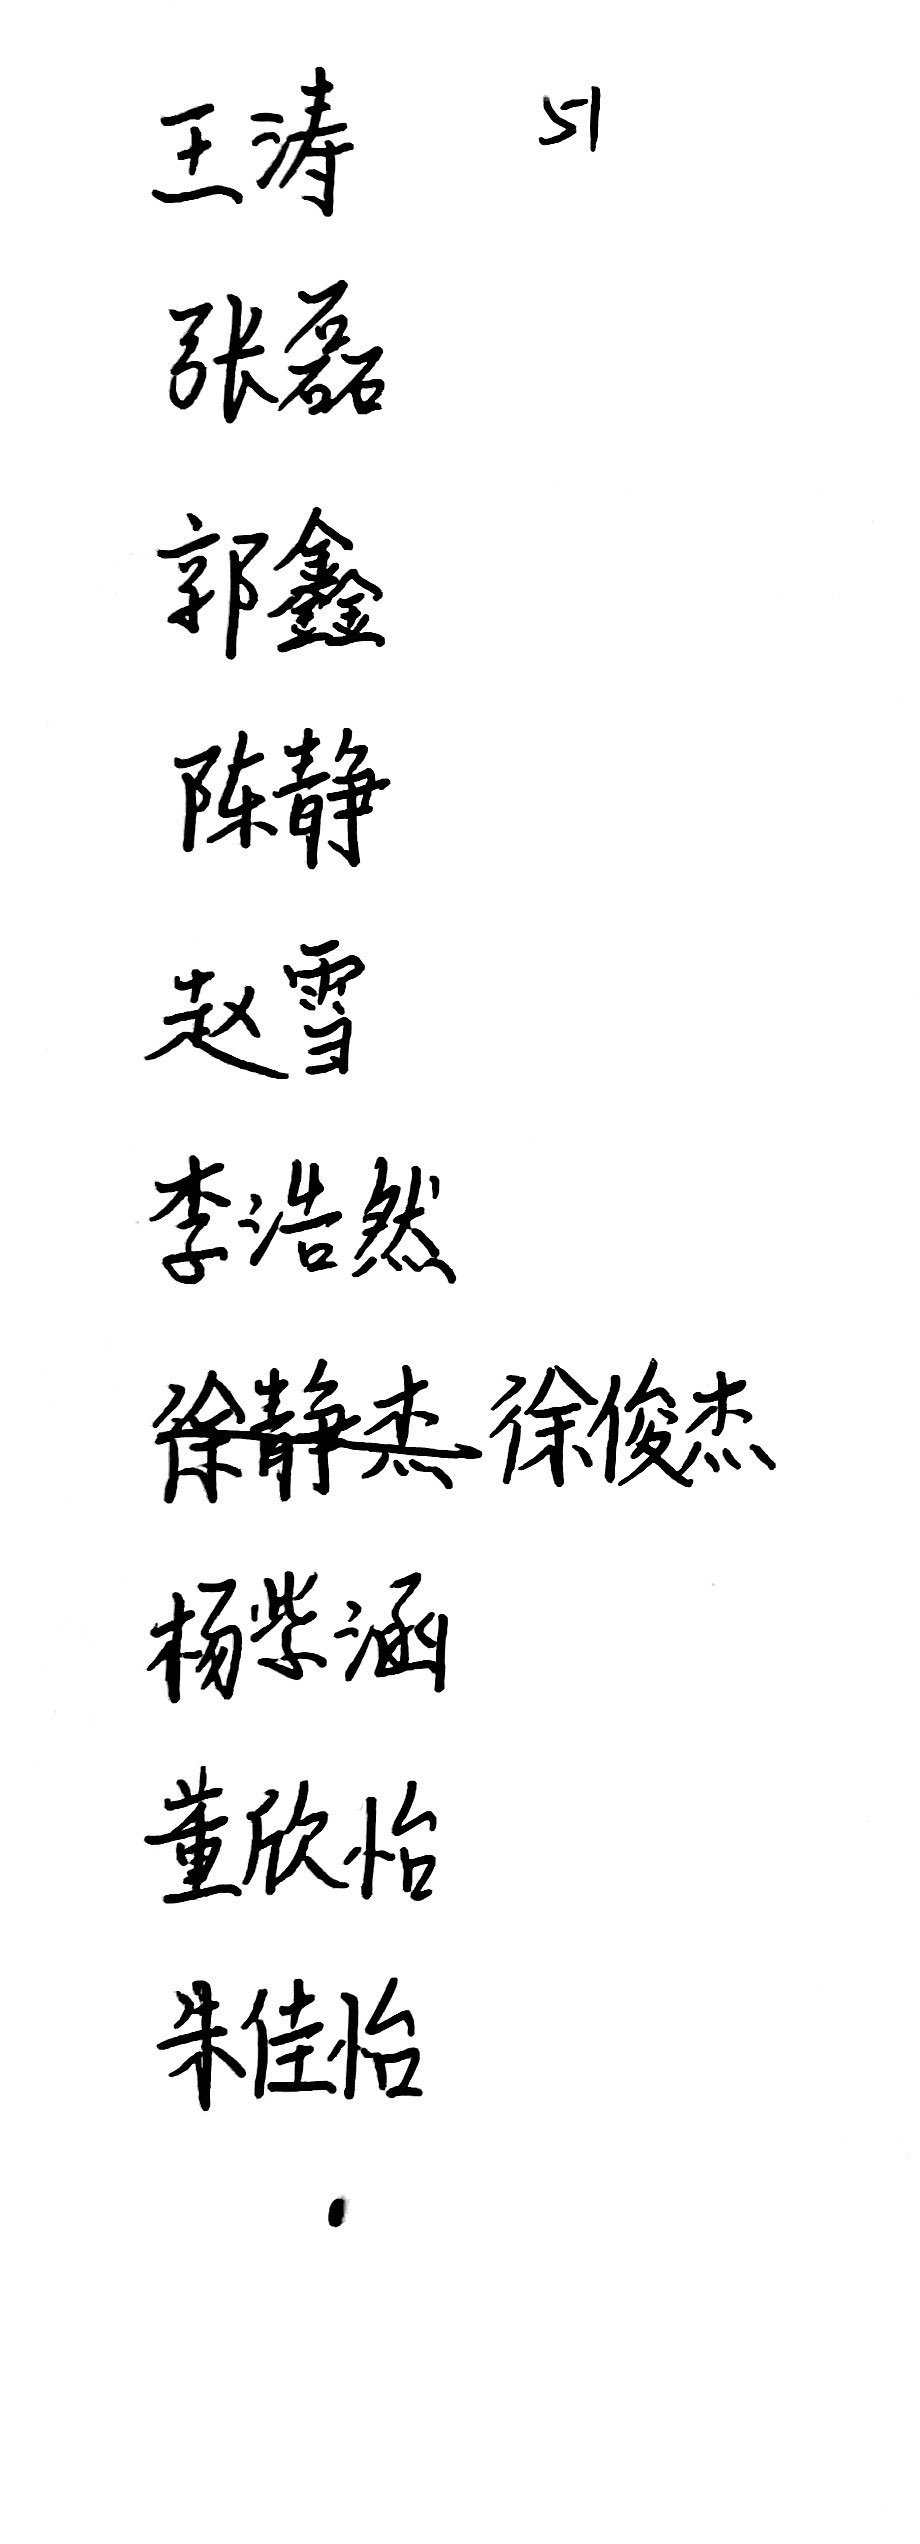 王涛 51
张磊
郭鑫
陈静
赵雪
李浩然
徐静杰 徐俊杰
杨紫涵
董欣怡
朱佳怡